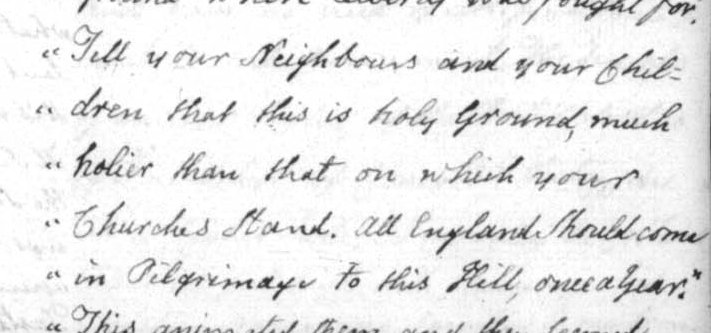 ground where liberty was fought for.
" Tell your Neighbours and your Chil=
" dren that this is holy Ground, much
" holier than that on which your
" Churches Stand. All England Should come
" in Pilgrimage to this Hill, once a Year."
" This animated them and they